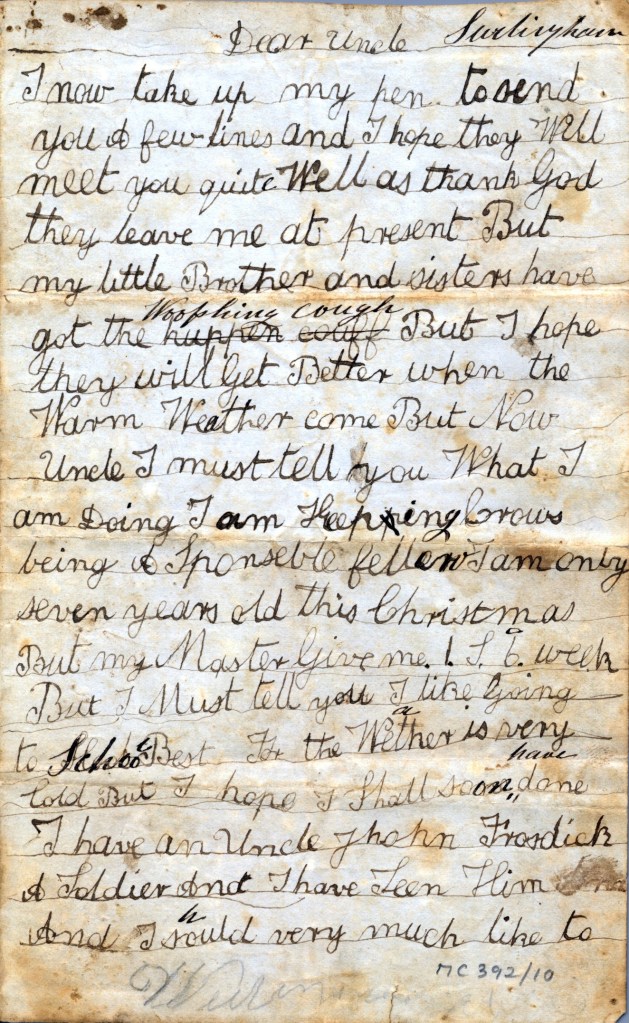 Dear Uncle Surlingham
I now take up my pen to send
you A few lines and I hope they Will
meet you quite Well as thank God
they leave me at present But
my little Brother and sisters have
Woophing cough
got the huppen couff But I hope
they will Get Better when the
Warm Weather come But Now
Uncle I must tell you What I
am Doing I am Keepping Crows
being A Sponseble fellow I am only
seven years old this Christmas
But my Master Give me 1 S. 6. week
But I Must tell you I like Going
to School Best For the Weather is very
have
Cold But I hope I Shall soon done
I have an Uncle Jhohn Frosdick
A Soldier And I have Seen Him
And I should very much like to
MC 392/10